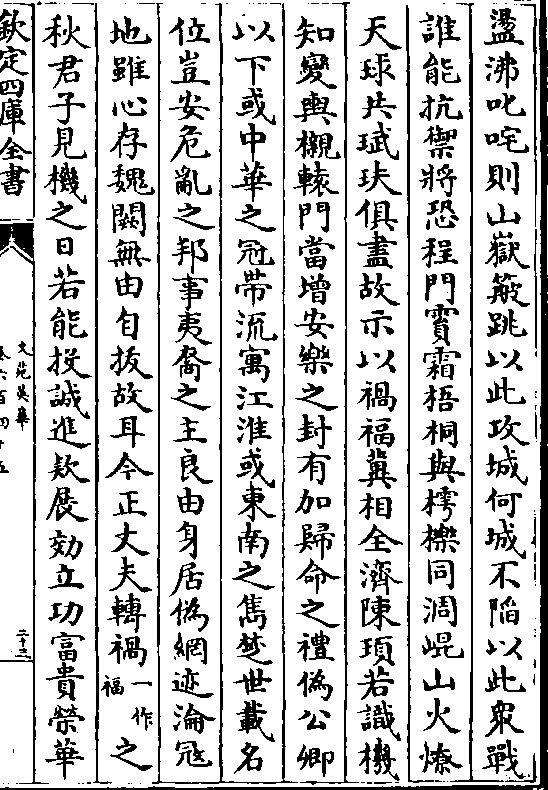 盪沸叱咤則山嶽簸跳以此攻城何城不陷以此衆戰
誰能抗禦將恐程門賓霜梧桐與樗櫟同凋崐山火燎
天球共珷玞俱盡故示以禍福冀相全濟陳頊若識機
知變輿櫬轅門當增安樂之封有加歸命之禮偽公卿
以下或中華之冠帶流寓江淮或東南之雋楚世載名
位豈安危亂之邦事夷裔之主良由身居偽網迹淪冦
地雖心存魏闕無由自拔故耳今正丈夫轉禍一作福之
秋君子見機之日若能投誠進欵展効立功富貴榮華
欽定四庫全書
文苑英華
卷六百四十五
二十三